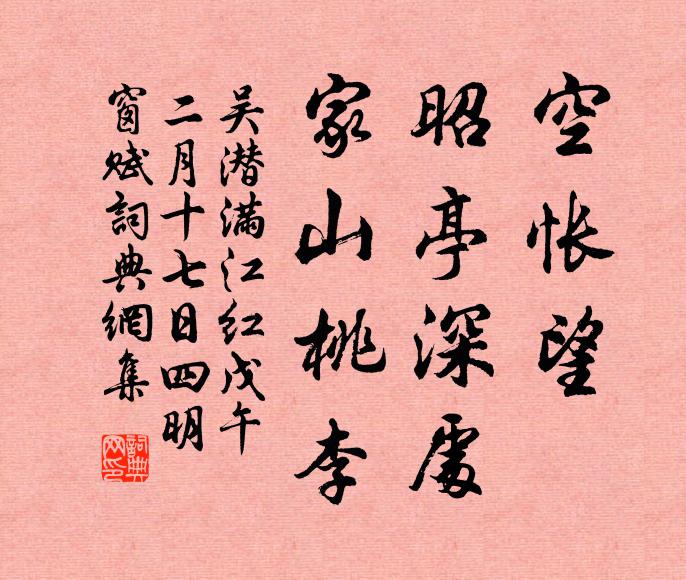 空怅望
昭亭深處
家山桃李
吴潜满江红戊午
二月十七日四明
窗赋詞典網集
詞典网印